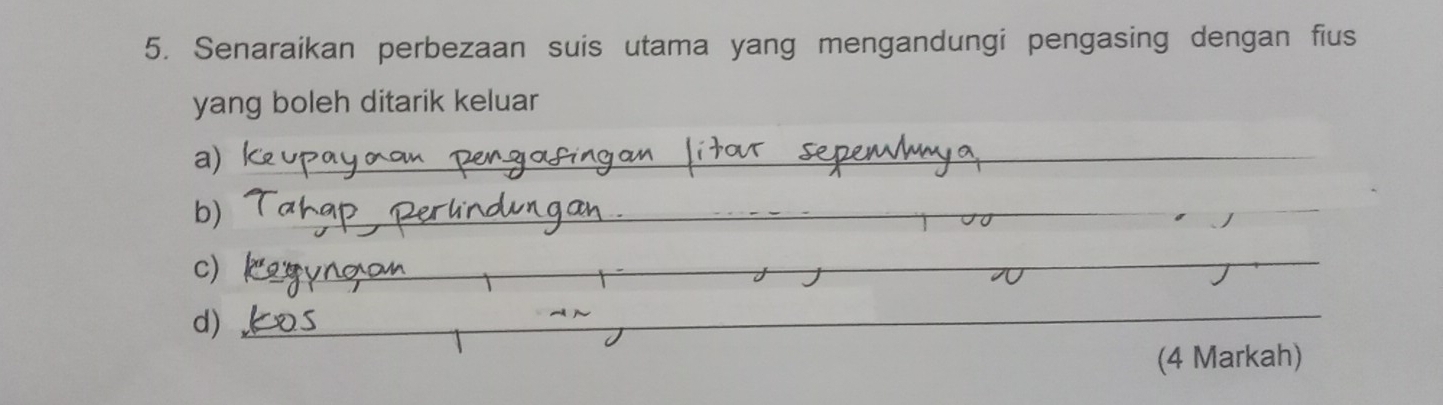 5. Senaraikan perbezaan suis utama yang mengandungi pengasing dengan fius
yang boleh ditarik keluar
a) Keupayaan pengasingan litar sepenuhnya
b) Tahap perlindungan.
c) kegunaan
d) kos
(4 Markah)